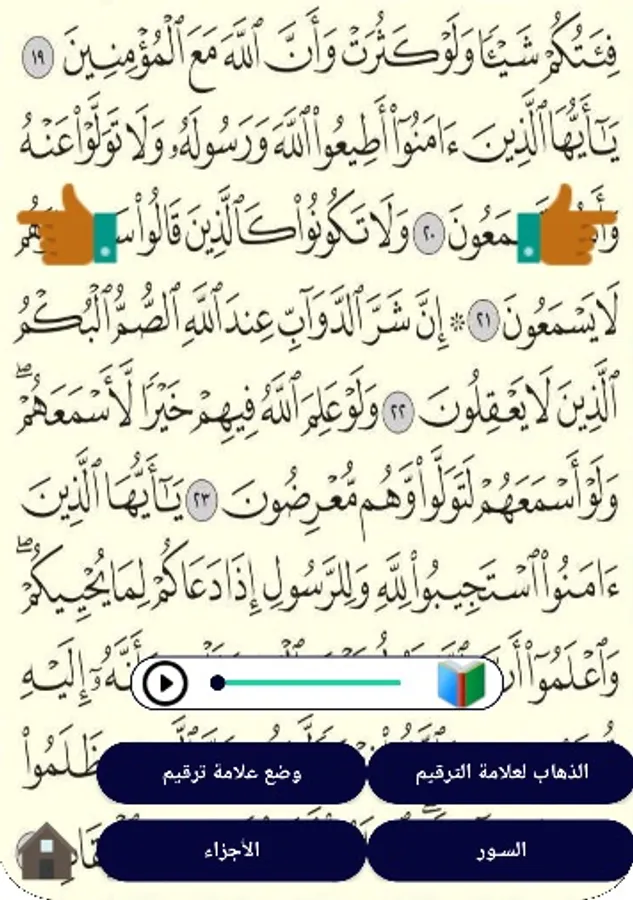 فِئَتُكُمْ شَيْـًٔا وَلَوْ كَثُرَتْ وَأَنَّ ٱللَّهَ مَعَ ٱلْمُؤْمِنِينَ ١٩
يَـٰٓأَيُّهَا ٱلَّذِينَ ءَامَنُوٓا۟ أَطِيعُوا۟ ٱللَّهَ وَرَسُولَهُۥ وَلَا تَوَلَّوْا۟ عَنْهُ
٢٠ وَلَا تَكُونُوا۟ كَٱلَّذِينَ قَالُوا۟
لَا يَسْمَعُونَ ٢١ ۞ إِنَّ شَرَّ ٱلدَّوَآبِّ عِندَ ٱللَّهِ ٱلصُّمُّ ٱلْبُكْمُ
ٱلَّذِينَ لَا يَعْقِلُونَ ٢٢ وَلَوْ عَلِمَ ٱللَّهُ فِيهِمْ خَيْرًا لَّأَسْمَعَهُمْ ۖ
وَلَوْ أَسْمَعَهُمْ لَتَوَلَّوا۟ وَّهُم مُّعْرِضُونَ ٢٣ يَـٰٓأَيُّهَا ٱلَّذِينَ
ءَامَنُوا۟ ٱسْتَجِيبُوا۟ لِلَّهِ وَلِلرَّسُولِ إِذَا دَعَاكُمْ لِمَا يُحْيِيكُمْ ۖ
وَٱعْلَمُوٓا۟ وَأَنَّهُۥٓ إِلَيْهِ
ظَلَمُوا۟
الذهاب لعلامة الترقيم
وضع علامة ترقيم
السور
الأجزاء